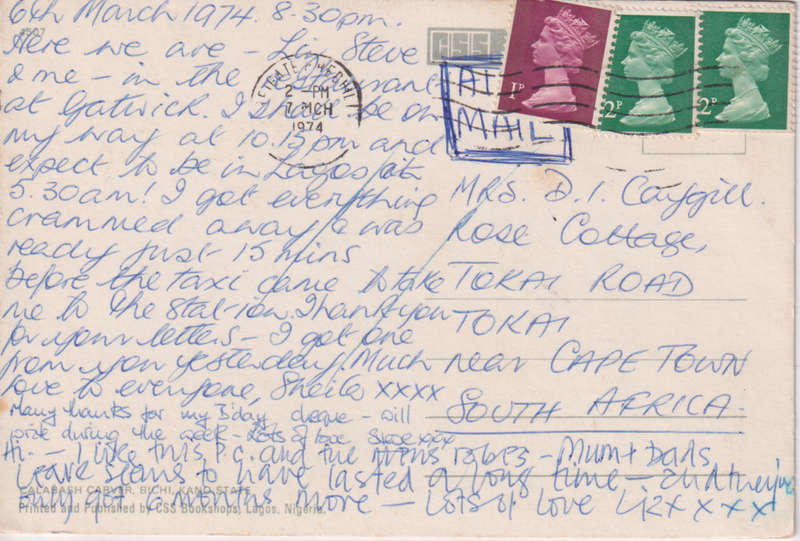 6th March 1974. 8.30pm.
4507
Here we are - Liz, Steve
& me - in the restaurant
at Gatwick. I shall be on
my way at 10.15pm and
expect to be in Lagos at
5.30am! I got everything
crammed away & was
ready just 15 mins
before the taxi came to take
me to the station. Thankyou
for your letters - I got one
from you yesterday. Much
love to everyone, Sheila xxxx
Many thanks for my B'day cheque - will
write during the week - Lots of love Steve xxx
Hi. - I like this P.C. and the mens robes - Mum + Dads
leave seems to have lasted a long time - and they've
only got 2 months more - Lots of love LIZ x x x x
CALABASH CARVER, BICHI, KANO STATE.
Printed and Published by CSS Bookshops, Lagos, Nigeria.
CSS
2 - PM
7 MCH
1974
1P
2P
2P
AIR
MAIL
MRS. D. I. Caygill.
Rose Cottage,
TOKAI ROAD
TOKAI
near CAPE TOWN
SOUTH AFRICA.